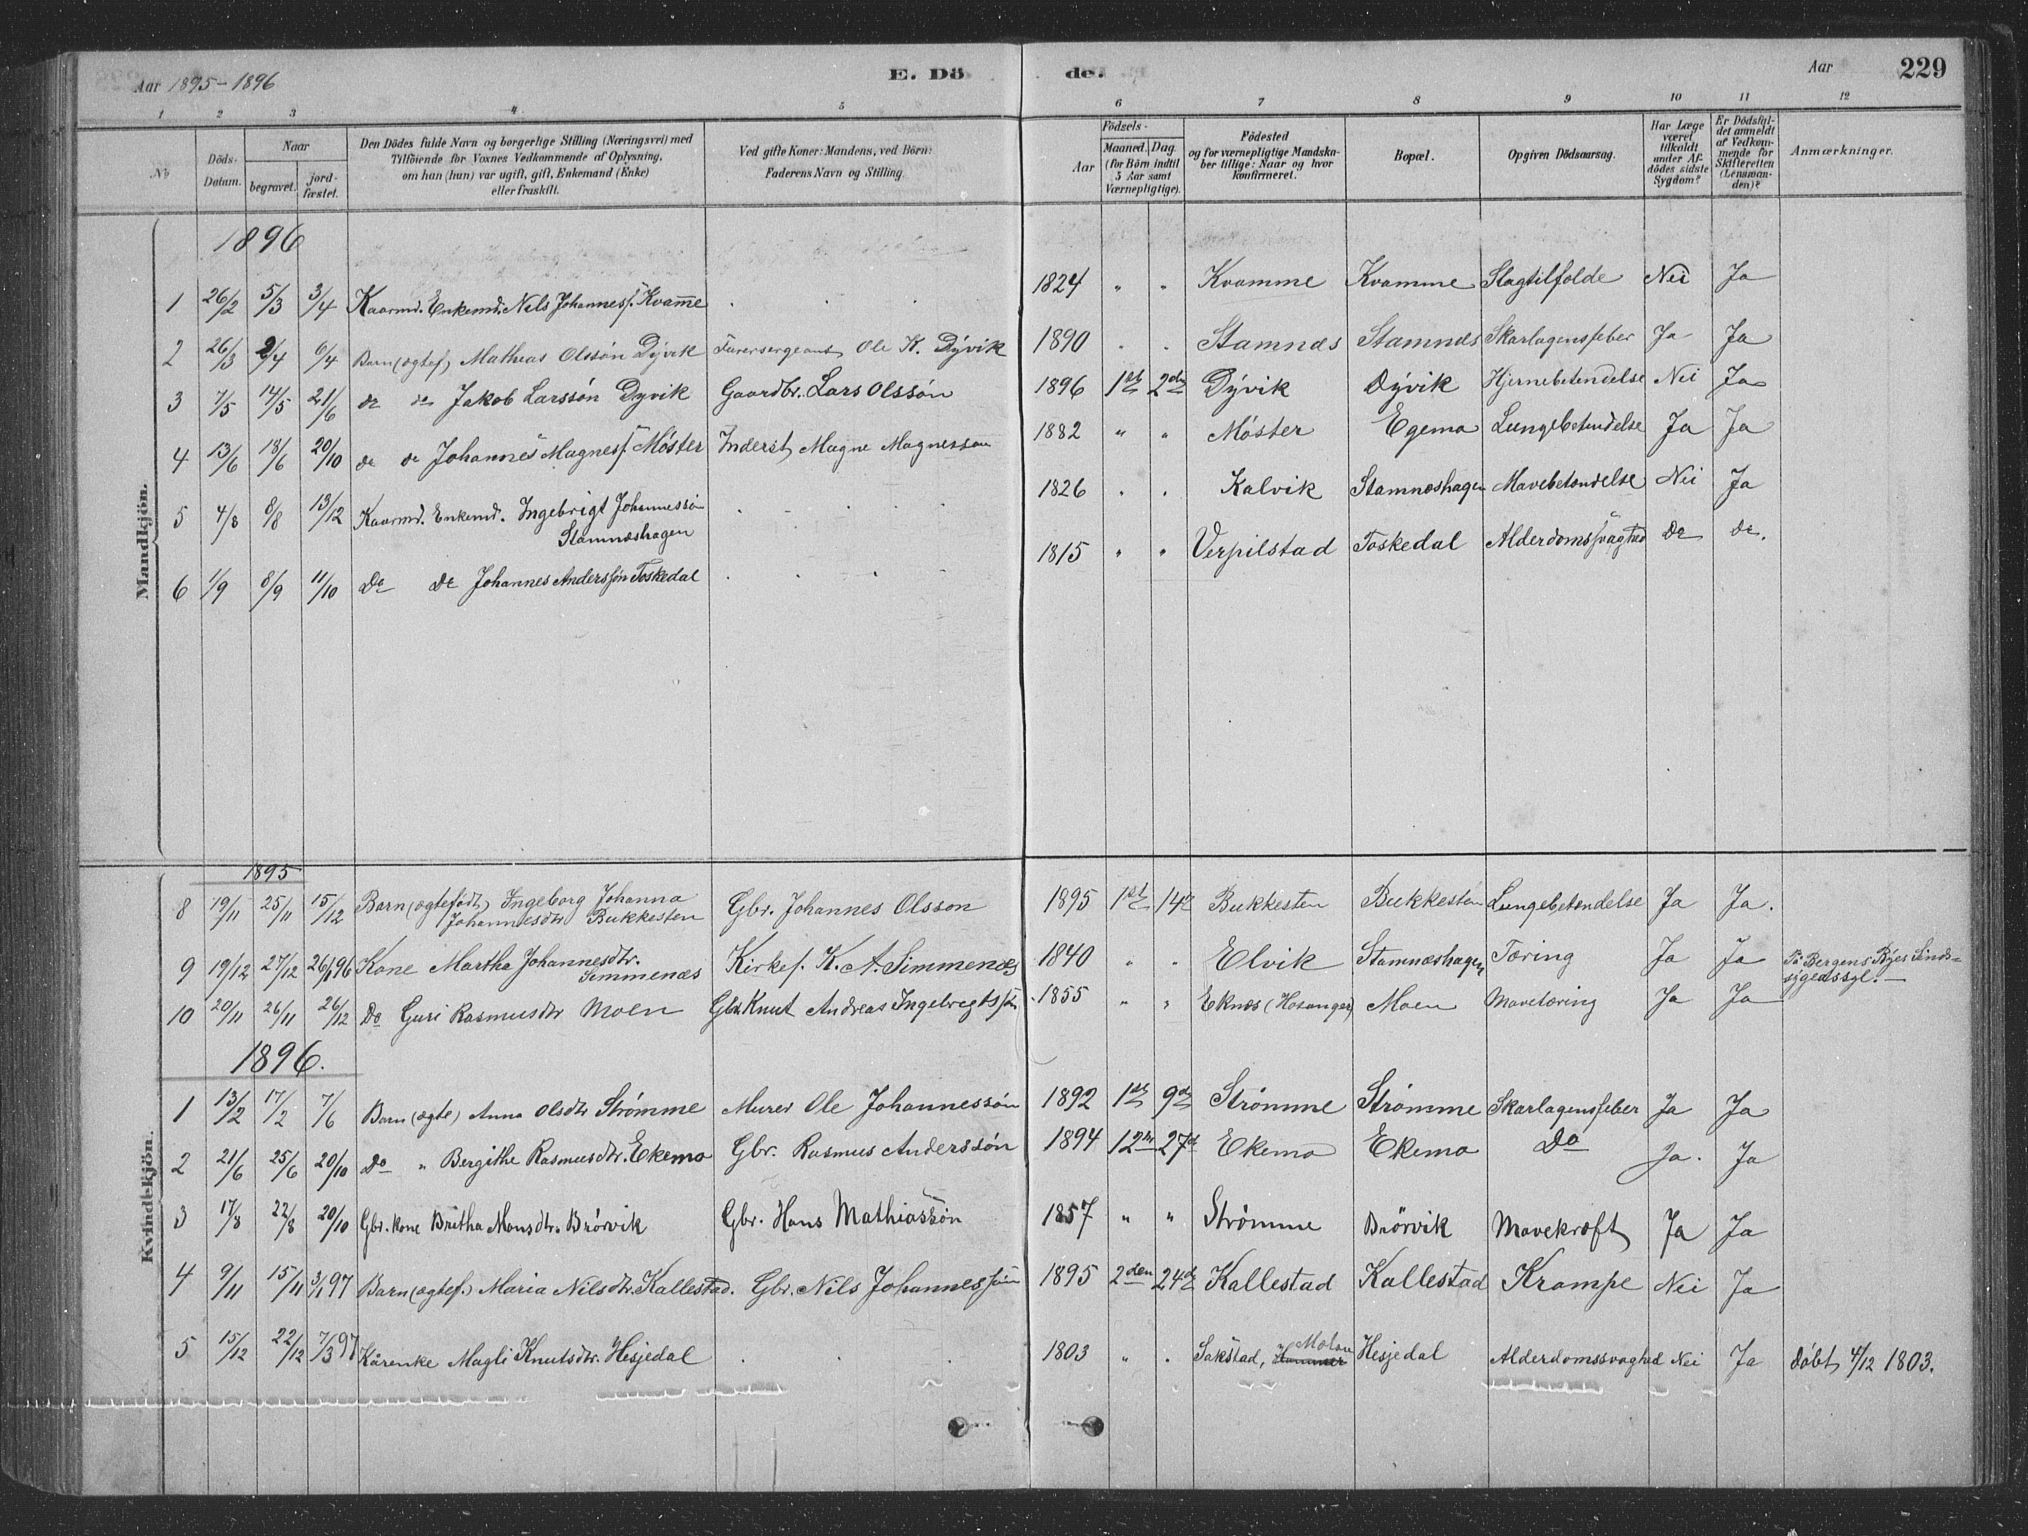 Aar 1895-1896 E. Dö de. Aar 229
1 2 3 4 5 6 7 8 9 10 11 12
No
Döds-Datum.
Naar
begravet.
jord-fæstet.
Den Dödes fulde Navn og borgerlige Stilling (Næringsvei) med
Tilföiende for Voxnes Vedkommende af Oplysning,
om han (hun) var ugift, gift, Enkemand (Enke)
eller fraskilt.
Ved gifte Koner: Mandens, ved Börn:
Faderens Navn og Stilling.
Födsels-
Aar
Maaned. Dag.
(for Börn indtil
5 Aar samt
Værnepligtige).
Födested
og for værnepligtige Mandska-
ber tillige: Naar og hvor
konfirmeret.
Bopæl.
Opgiven Dödsaarsag.
Har Læge
været
tilkaldt
under Af-
dödes sidste
Sygdom?
Er Dödsfal-
det anmeldt
af Vedkom-
mende for
Skifteretten
(Lensman-
den)?
Anmærkninger.
Mandkjön.
1896
1 26/2 5/3 3/4 Kaarmd. Enkemd. Nils Johannesf. Kvamme . . . 1824 " " Kvamme Kvamme Slagtilfolde Nei Ja
2 26/3 2/4 6/4 Barn (ægtef) Mathias Olssøn Dyvik Furersergeant Ole K. Dyvik 1890 . . Stamnæs Stamnæs Skarlagensfeber Ja Ja
3 7/5 14/5 21/6 do do Jakob Larssøn Dyvik Gaardbr. Lars Olssøn 1896 1st 2den Dyvik Dyvik Hjernebetendelse Nei Ja
4 13/6 18/6 20/10 do do Johannes Magnesf. Møster Inderst Magne Magnesson 1882 " " Møster Egemo Lungebetendelse Ja Ja
5 4/8 8/8 13/12 Kaarmd. Enkemd. Ingebrigt Johannessøn
Stamnæshagen . . . . 1826 . . Kalvik Stamnæshagen Mavebetændelse Nei Ja
6 1/9 8/9 11/10 Do Do Johannes Anderssøn Toskedal . . . . 1815 " " Verpilstad Toskedal Alderdomssvaghed Do do.
Kvindekjön.
1895
8 19/11 25/11 15/12 Barn (ægtefødt) Ingeborg Johanna
Johannesdtr Bukkesten Gbr. Johannes Olsson 1895 1st 14de Bukkesten Bukkesten Lungebetændelse Ja Ja.
9 19/12 27/12 26/1 96 Kone Martha Johannesdtr.
Simmenæs Kirkef. K. A. Simmenæs 1840 " " Elvik Stamnæshagen Tæring Ja Ja På Bergens Byes Sinds-
sygeassyl. —
10 20/11 26/11 26/12 Do Guri Rasmusdtr Moen Gbr. Knut Andreas Ingebregtssøn 1855 " " Eknæs (Hosanger) Moen Mavetæring Ja Ja
1896.
1 13/2 17/2 7/6 Barn (ægte) Anna Olsdtr Strømme Murer Ole Johannessøn 1892 1st 9de Strømme Strømme Skarlagensfeber Ja Ja
2 21/6 25/6 20/10 Do " Bergithe Rasmusdtr. Ekemo Gbr. Rasmus Anderssøn 1894 12te 27de Ekemo Ekemo Do Ja. Ja
3 17/8 22/8 20/10 Gbr. kone Britha Monsdtr. Brørvik Gbr. Hans Mathiassøn 1857 " " Strømme Brörvik Mavekræft Ja Ja
4 9/11 15/11 3/1 97 Barn (ægtef.) Maria Nilsdtr. Kallestad. Gbr. Nils Johannessøn 1895 2den 24de Kallestad Kallestad Krampe Nei Ja
5 15/12 22/12 7/3 97 Kårenke Magli Knutsdtr. Hesjedal . . . 1803 " . Sakstad, Hammer Hesjedal Alderdomssvaghed Nei Ja døbt 4/12 1803.